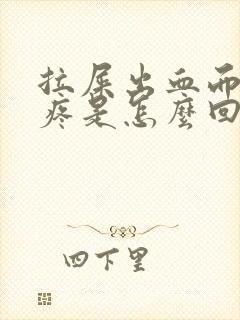 拉屎出血而
疼是怎麼回
四下里